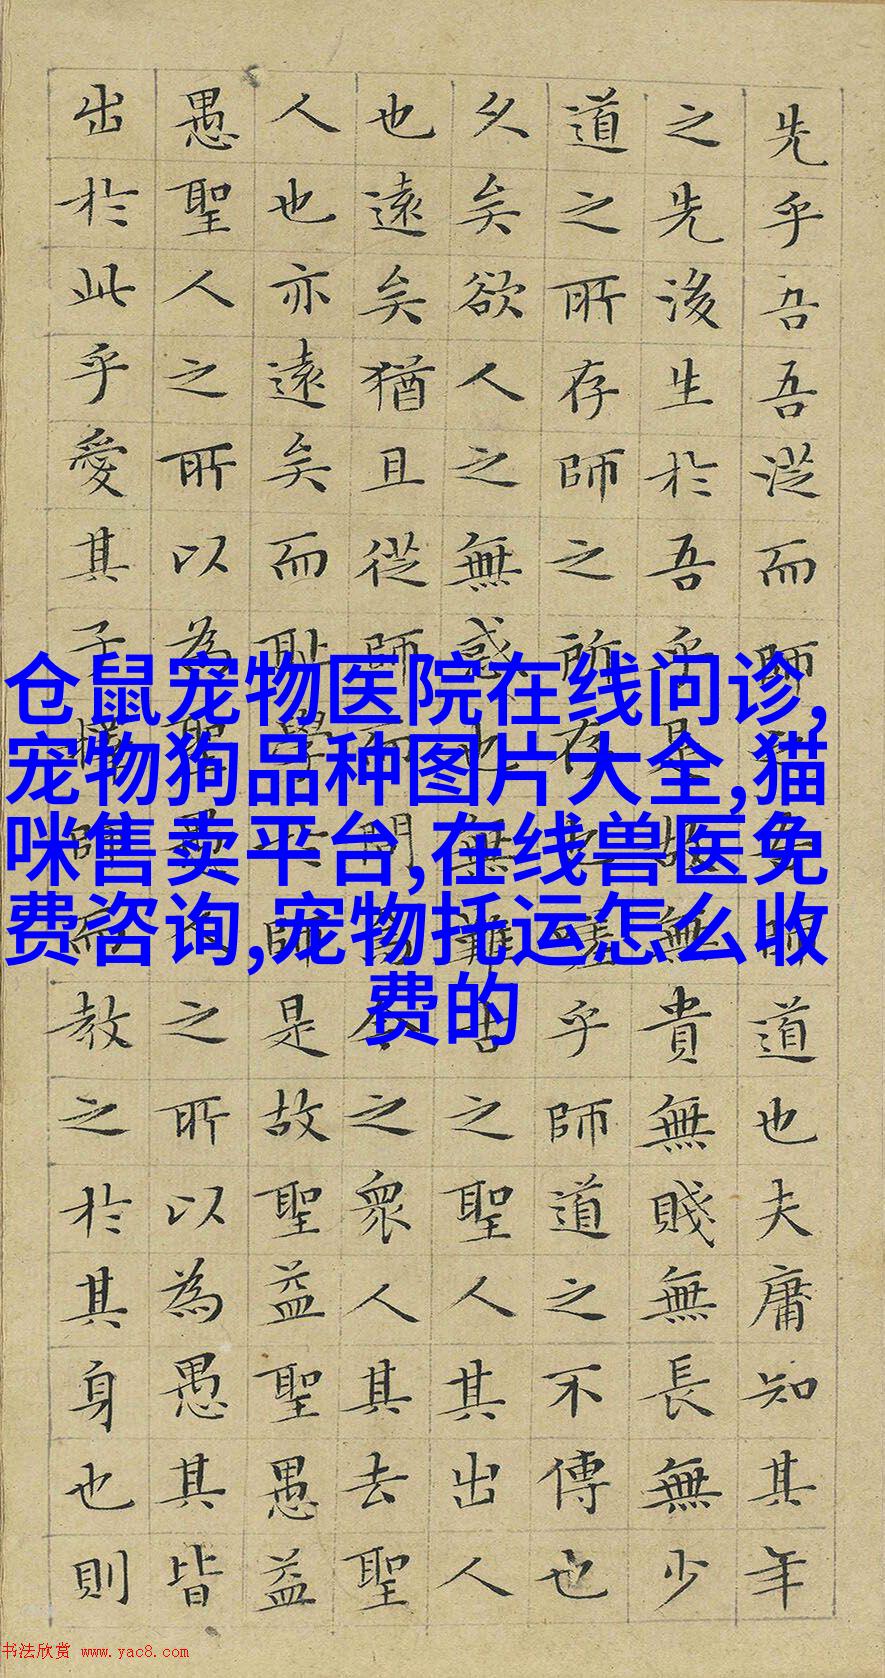 先乎吾吾從而師師道也夫庸知其年
之先後生於吾乎是故無貴無賤無長無少
道之所存師之所存也嗟乎師道之不傳也
久矣欲人之無惑也無難古之聖人其出人
也遠矣猶且從師而問焉今之衆人其去聖
人也亦遠矣而恥學於師是故聖益聖愚益
愚聖人之所以為聖愚人之所以為愚其皆
出於此乎愛其子擇師而教之於其身也則
仓鼠宠物医院在线问诊,
宠物狗品种图片大全,猫
咪售卖平台,在线兽医免
费咨询,宠物托运怎么收
费的
书法欣赏 www.yac8.com